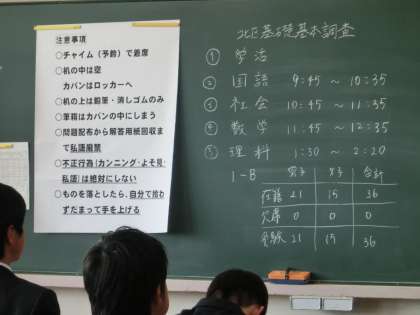 注意事項
○チャイム（予鈴）で着席
○机の中は空
カバンはロッカーへ
○机の上は鉛筆・消しゴムのみ
○筆箱はカバンの中にしまう
○問題配布から解答用紙回収ま
で私語厳禁
○不正行為(カンニング・よそ見・
私語)は絶対にしない
○ものを落としたら、自分で拾わ
ずだまって手を上げる
北区基礎基本調査
① 学活
② 国語 9:45 ～ 10:35
③ 社会 10:45 ～ 11:35
④ 数学 11:45 ～ 12:35
⑤ 理科 1:30 ～ 2:20
1-B 男子 女子 合計
在籍 21 15 36
欠席 0 0 0
受験 21 15 36